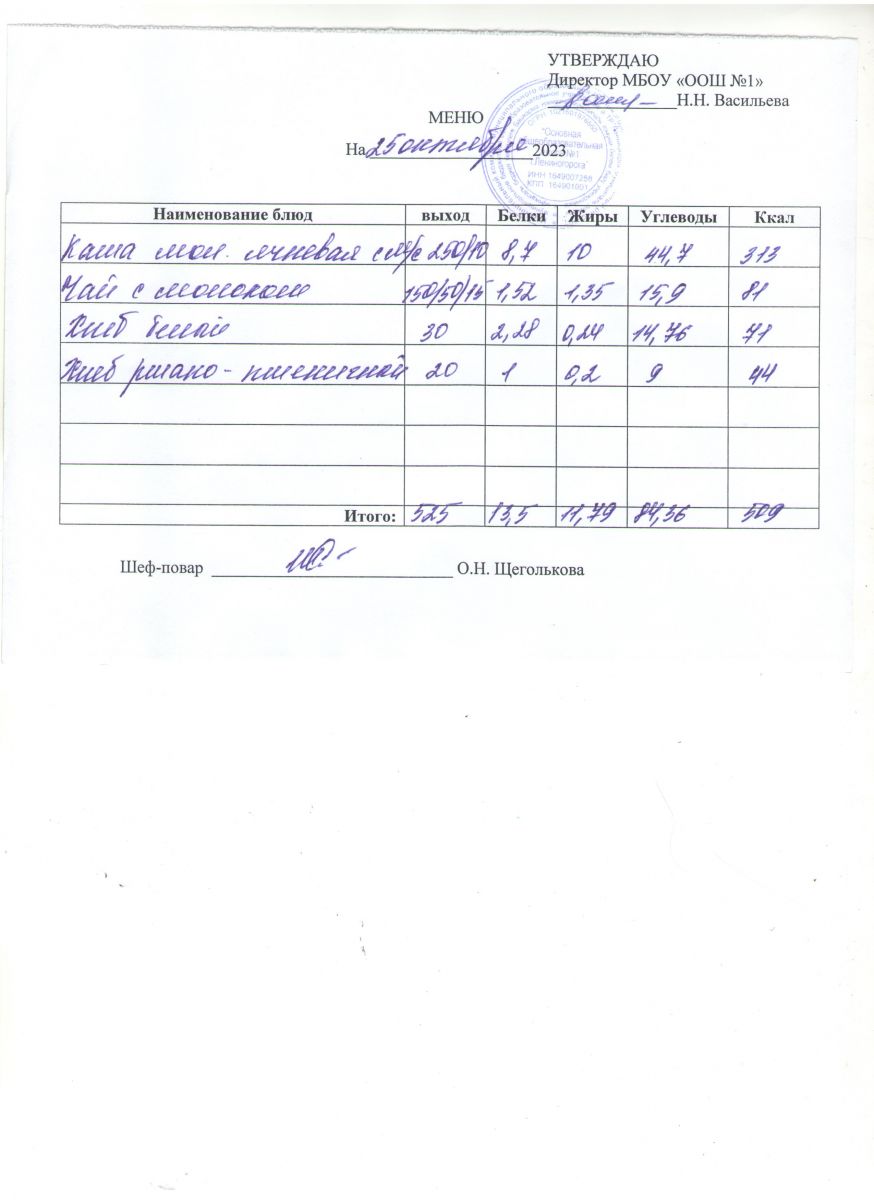 УТВЕРЖДАЮ
Директор МБОУ «ООШ №1»
Н.Н. Васильева
МЕНЮ
На 25 октября 2023
"Основная
общеобразовательная
№1
Лениногорска"
ИНН 1649007256
КПП 164901001
Наименование блюд выход Белки Жиры Углеводы Ккал
Каша мол. ячневая с м/с 250/10 8,7 10 44,7 313
Чай с молоком 150/50/15 1,52 1,35 15,9 81
Хлеб белый 30 2,28 0,24 14,76 71
Хлеб ржано-пшеничной 20 1 0,2 9 44
Итого: 525 13,5 11,79 84,36 509
Шеф-повар О.Н. Щеголькова